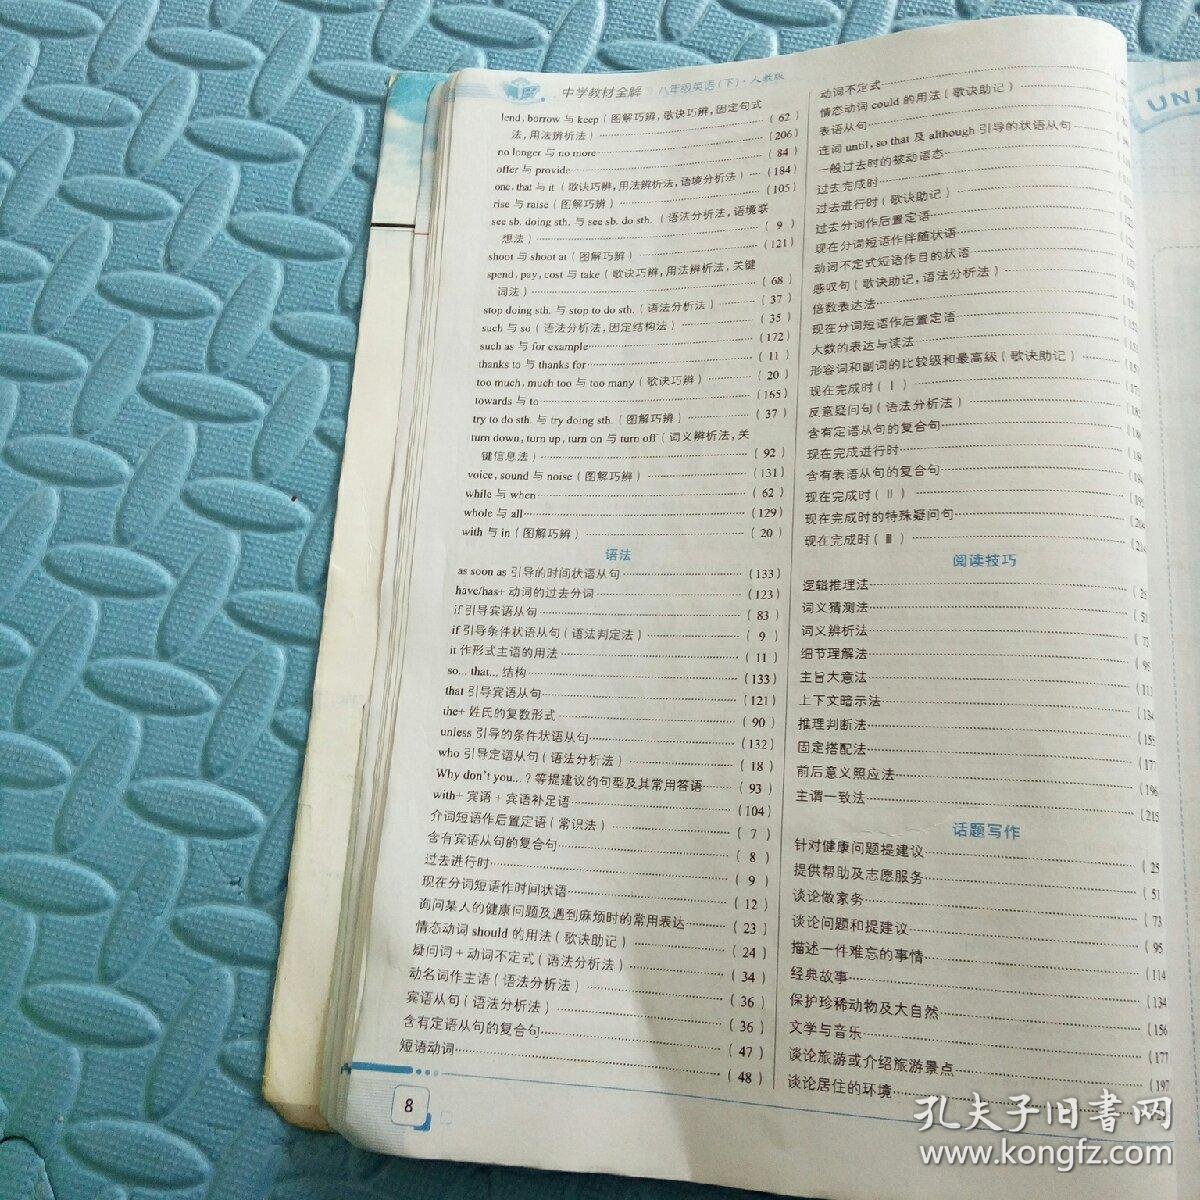 中学教材全解 八年级英语(下)·人教版
lend, borrow 与 keep(图解巧辨,歌诀巧辨,固定句式
法,用法辨析法) (62)
no longer 与 no more (206)
offer 与 provide (84)
one, that 与 it(歌诀巧辨,用法辨析法,语境分析法) (184)
rise 与 raise(图解巧辨) (105)
see sb. doing sth. 与 see sb. do sth.(语法分析法,语境联
想法) (9)
shout 与 shout at(图解巧辨) (121)
spend, pay, cost 与 take(歌诀巧辨,用法辨析法,关键
词法) (68)
stop doing sth. 与 stop to do sth.(语法分析法) (37)
such 与 so(语法分析法,固定结构法) (35)
such as 与 for example (172)
thanks to 与 thanks for (11)
too much, much too 与 too many(歌诀巧辨) (20)
towards 与 to (165)
try to do sth. 与 try doing sth.(图解巧辨) (37)
turn down, turn up, turn on 与 turn off(词义辨析法,关
键信息法) (92)
voice, sound 与 noise(图解巧辨) (131)
while 与 when (62)
whole 与 all (129)
with 与 in(图解巧辨) (20)
语法
as soon as 引导的时间状语从句 (133)
have/has+ 动词的过去分词 (123)
if 引导宾语从句 (83)
if 引导条件状语从句(语法判定法) (9)
it 作形式主语的用法 (11)
so... that... 结构 (133)
that 引导宾语从句 (121)
the+ 姓氏的复数形式 (90)
unless 引导的条件状语从句 (132)
who 引导定语从句(语法分析法) (18)
Why don't you...?等提建议的句型及其常用答语 (93)
with+ 宾语 + 宾语补足语 (104)
介词短语作后置定语(常识法) (7)
含有宾语从句的复合句 (8)
过去进行时 (9)
现在分词短语作时间状语 (12)
询问某人的健康问题及遇到麻烦时的常用表达 (23)
情态动词 should 的用法(歌诀助记) (24)
疑问词 + 动词不定式(语法分析法) (34)
动名词作主语(语法分析法) (36)
宾语从句(语法分析法) (36)
含有定语从句的复合句 (47)
短语动词 (48)
8
动词不定式
情态动词 could 的用法(歌诀助记)
表语从句
连词 until, so that 及 although 引导的状语从句
一般过去时的被动语态
过去完成时
过去进行时(歌诀助记)
过去分词作后置定语
现在分词短语作伴随状语
动词不定式短语作目的状语
感叹句(歌诀助记,语法分析法)
倍数表达法
现在分词短语作后置定语
大数的表达与读法
形容词和副词的比较级和最高级(歌诀助记)
现在完成时(Ⅰ)
反意疑问句(语法分析法)
含有定语从句的复合句
现在完成进行时
含有表语从句的复合句
现在完成时(Ⅱ)
现在完成时的特殊疑问句
现在完成时(Ⅲ)
阅读技巧
逻辑推理法
词义猜测法
词义辨析法
细节理解法
主旨大意法
上下文暗示法
推理判断法
固定搭配法
前后意义照应法 (196
主谓一致法 (215
话题写作
针对健康问题提建议 (25
提供帮助及志愿服务 (51
谈论做家务 (73
谈论问题和提建议 (95
描述一件难忘的事情 (114
经典故事 (134
保护珍稀动物及大自然 (156
文学与音乐 (177
谈论旅游或介绍旅游景点 (197
谈论居住的环境
UNI
孔夫子旧书网
www.kongfz.com